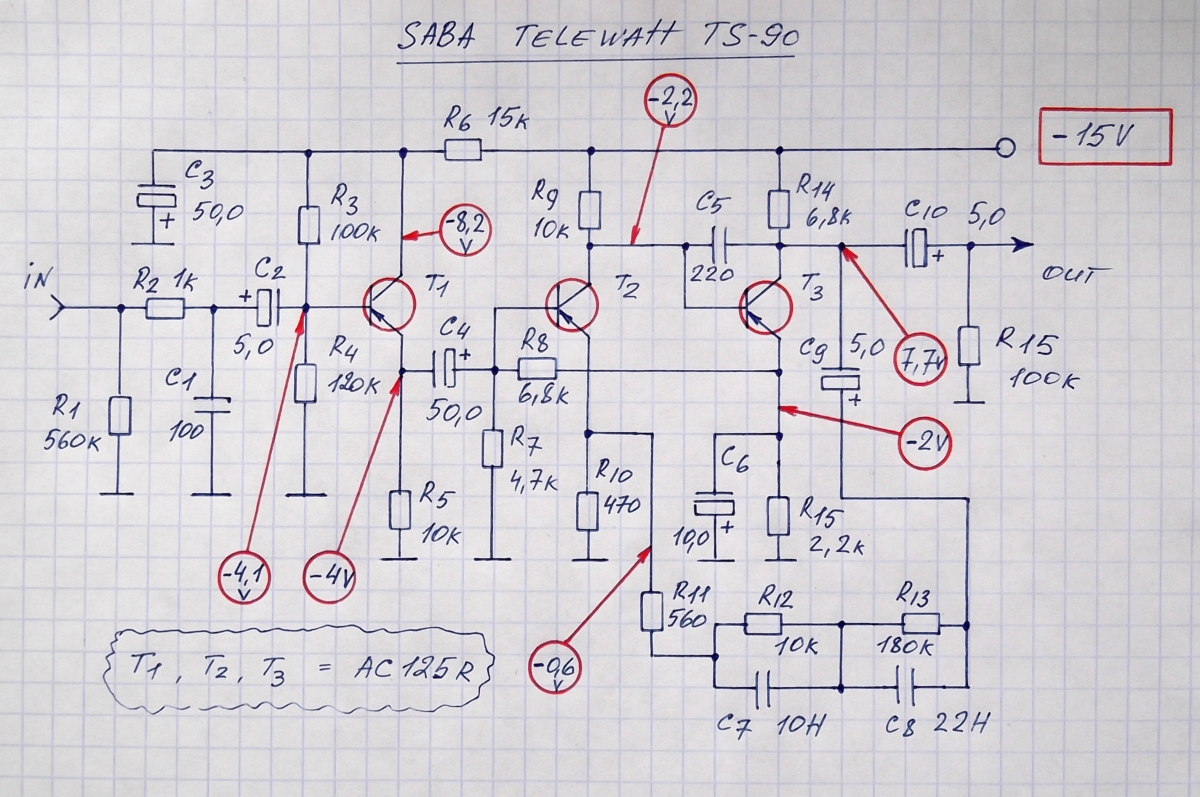 SABA TELEWATT TS-90
-2,2 V
-15V
R6 15к
C3 50,0 +
R3 100к
-8,2 V
R9 10к
C5 220
R14 6,8к
C10 5,0 +
iN
R2 1к
C2 + 5,0
T1
T2
T3
OUT
C4 + 50,0
R8 6,8к
C9 5,0 +
7,7V
R15 100к
R1 560к
C1 100
R4 120к
R7 4,7к
R10 470
C6 10,0 +
-2V
R5 10к
R15 2,2к
-4,1 V
-4V
R11 560
R12 10к
R13 180к
-0,6 V
T1, T2, T3 = AC125R
C7 10Н
C8 22Н